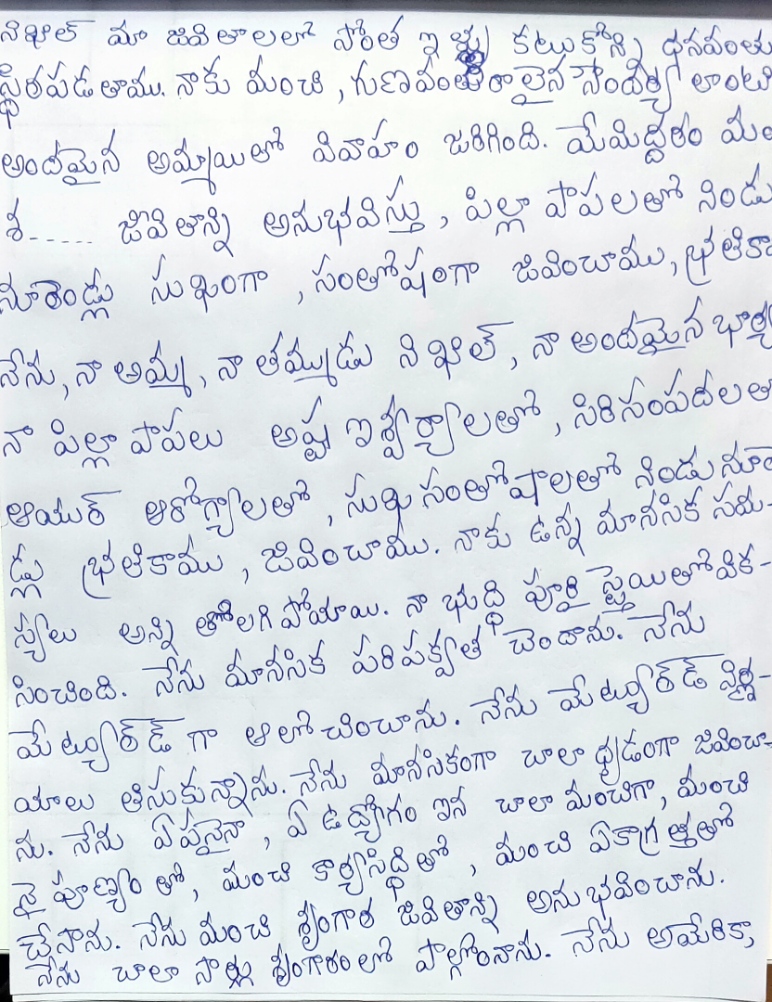 నిఖిల్ మా జివితాలలో సొంత ఇళ్లు కటుకోన్ని ధనవంతు
స్థిరపడతాము. నాకు మంచి, గుణవంతురాలైన సౌందర్య లాంటి
అందమైన అమ్మాయితో వివాహం జరిగింది. మేమిద్దరం మం
శ...... జీవితాన్ని అనుభవిస్తు, పిల్లా పాపలతో నిండు
నూరెండ్లు సుఖంగా, సంతోషంగా జివించాము, భ్రతికా
నేను, నా అమ్మ, నా తమ్ముడు నిఖిల్, నా అందమైన భార్య
నా పిల్లా పాపలు అష్ట ఐశ్వర్యాలతో, సిరిసంపదలతో
ఆయుర్ ఆరోగ్యాలతో, సుఖ సంతోషాలతో నిండు నూరెం
డ్లు భ్రతికాము, జివించాము. నాకు ఉన్న మానసిక సమ-
స్యలు అన్ని తోలగి పోయాయి. నా భుద్ధి పూర్తి స్థైయితో విక-
సించింది. నేను మానసిక పరిపక్వత చెందాను. నేను
మేట్యూర్డ్ గా ఆలోచించాను. నేను మేట్యూర్డ్ నిర్ణ-
యాలు తిసుకున్నాను. నేను మానసికంగా చాలా ధృడంగా జివించా-
ను. నేను ఏపనైనా, ఏ ఉద్యోగం ఐన చాలా మంచిగా, మంచి
నైపూణ్యం తో, మంచి కార్యసిద్ధితో, మంచి ఏకాగ్రత్తతో
చేసాను. నేను మంచి శృంగార జీవితాన్ని అనుభవించాను.
నేను చాలా సార్లు శృంగారంలో పాల్గోంనాను. నేను అమేరికా,